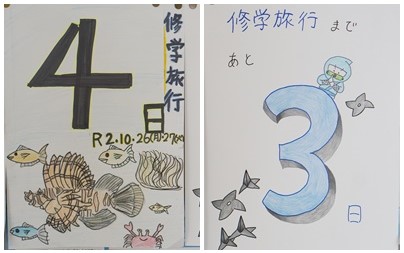 修学旅行
4
日
R2.10.26(月)・27(火)
修学旅行 まで
あと
3
日